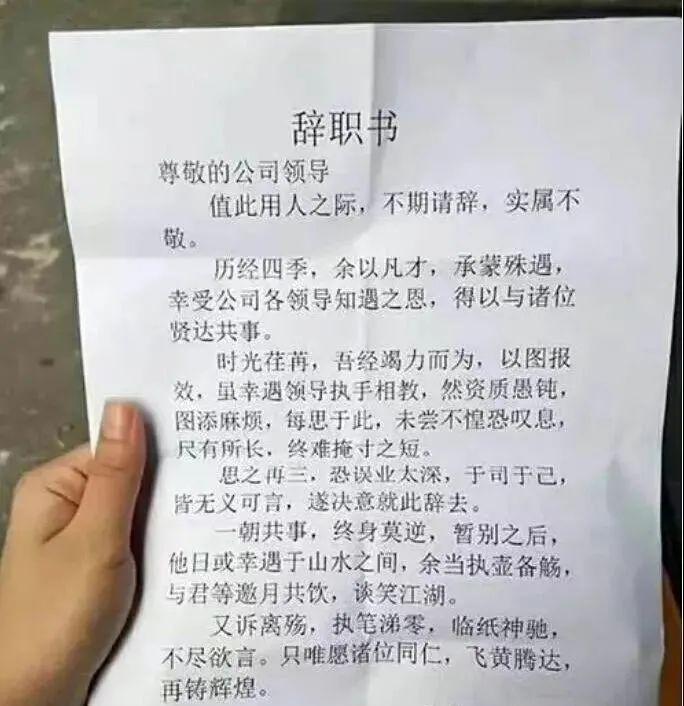 辞职书
尊敬的公司领导
值此用人之际，不期请辞，实属不
敬。
历经四季，余以凡才，承蒙殊遇，
幸受公司各领导知遇之恩，得以与诸位
贤达共事。
时光荏苒，吾经竭力而为，以图报
效，虽幸遇领导执手相教，然资质愚钝，
图添麻烦，每思于此，未尝不惶恐叹息，
尺有所长，终难掩寸之短。
思之再三，恐误业太深，于司于己，
皆无义可言，遂决意就此辞去。
一朝共事，终身莫逆，暂别之后，
他日或幸遇于山水之间，余当执壶备觞，
与君等邀月共饮，谈笑江湖。
又诉离殇，执笔涕零，临纸神驰，
不尽欲言。只唯愿诸位同仁，飞黄腾达，
再铸辉煌。